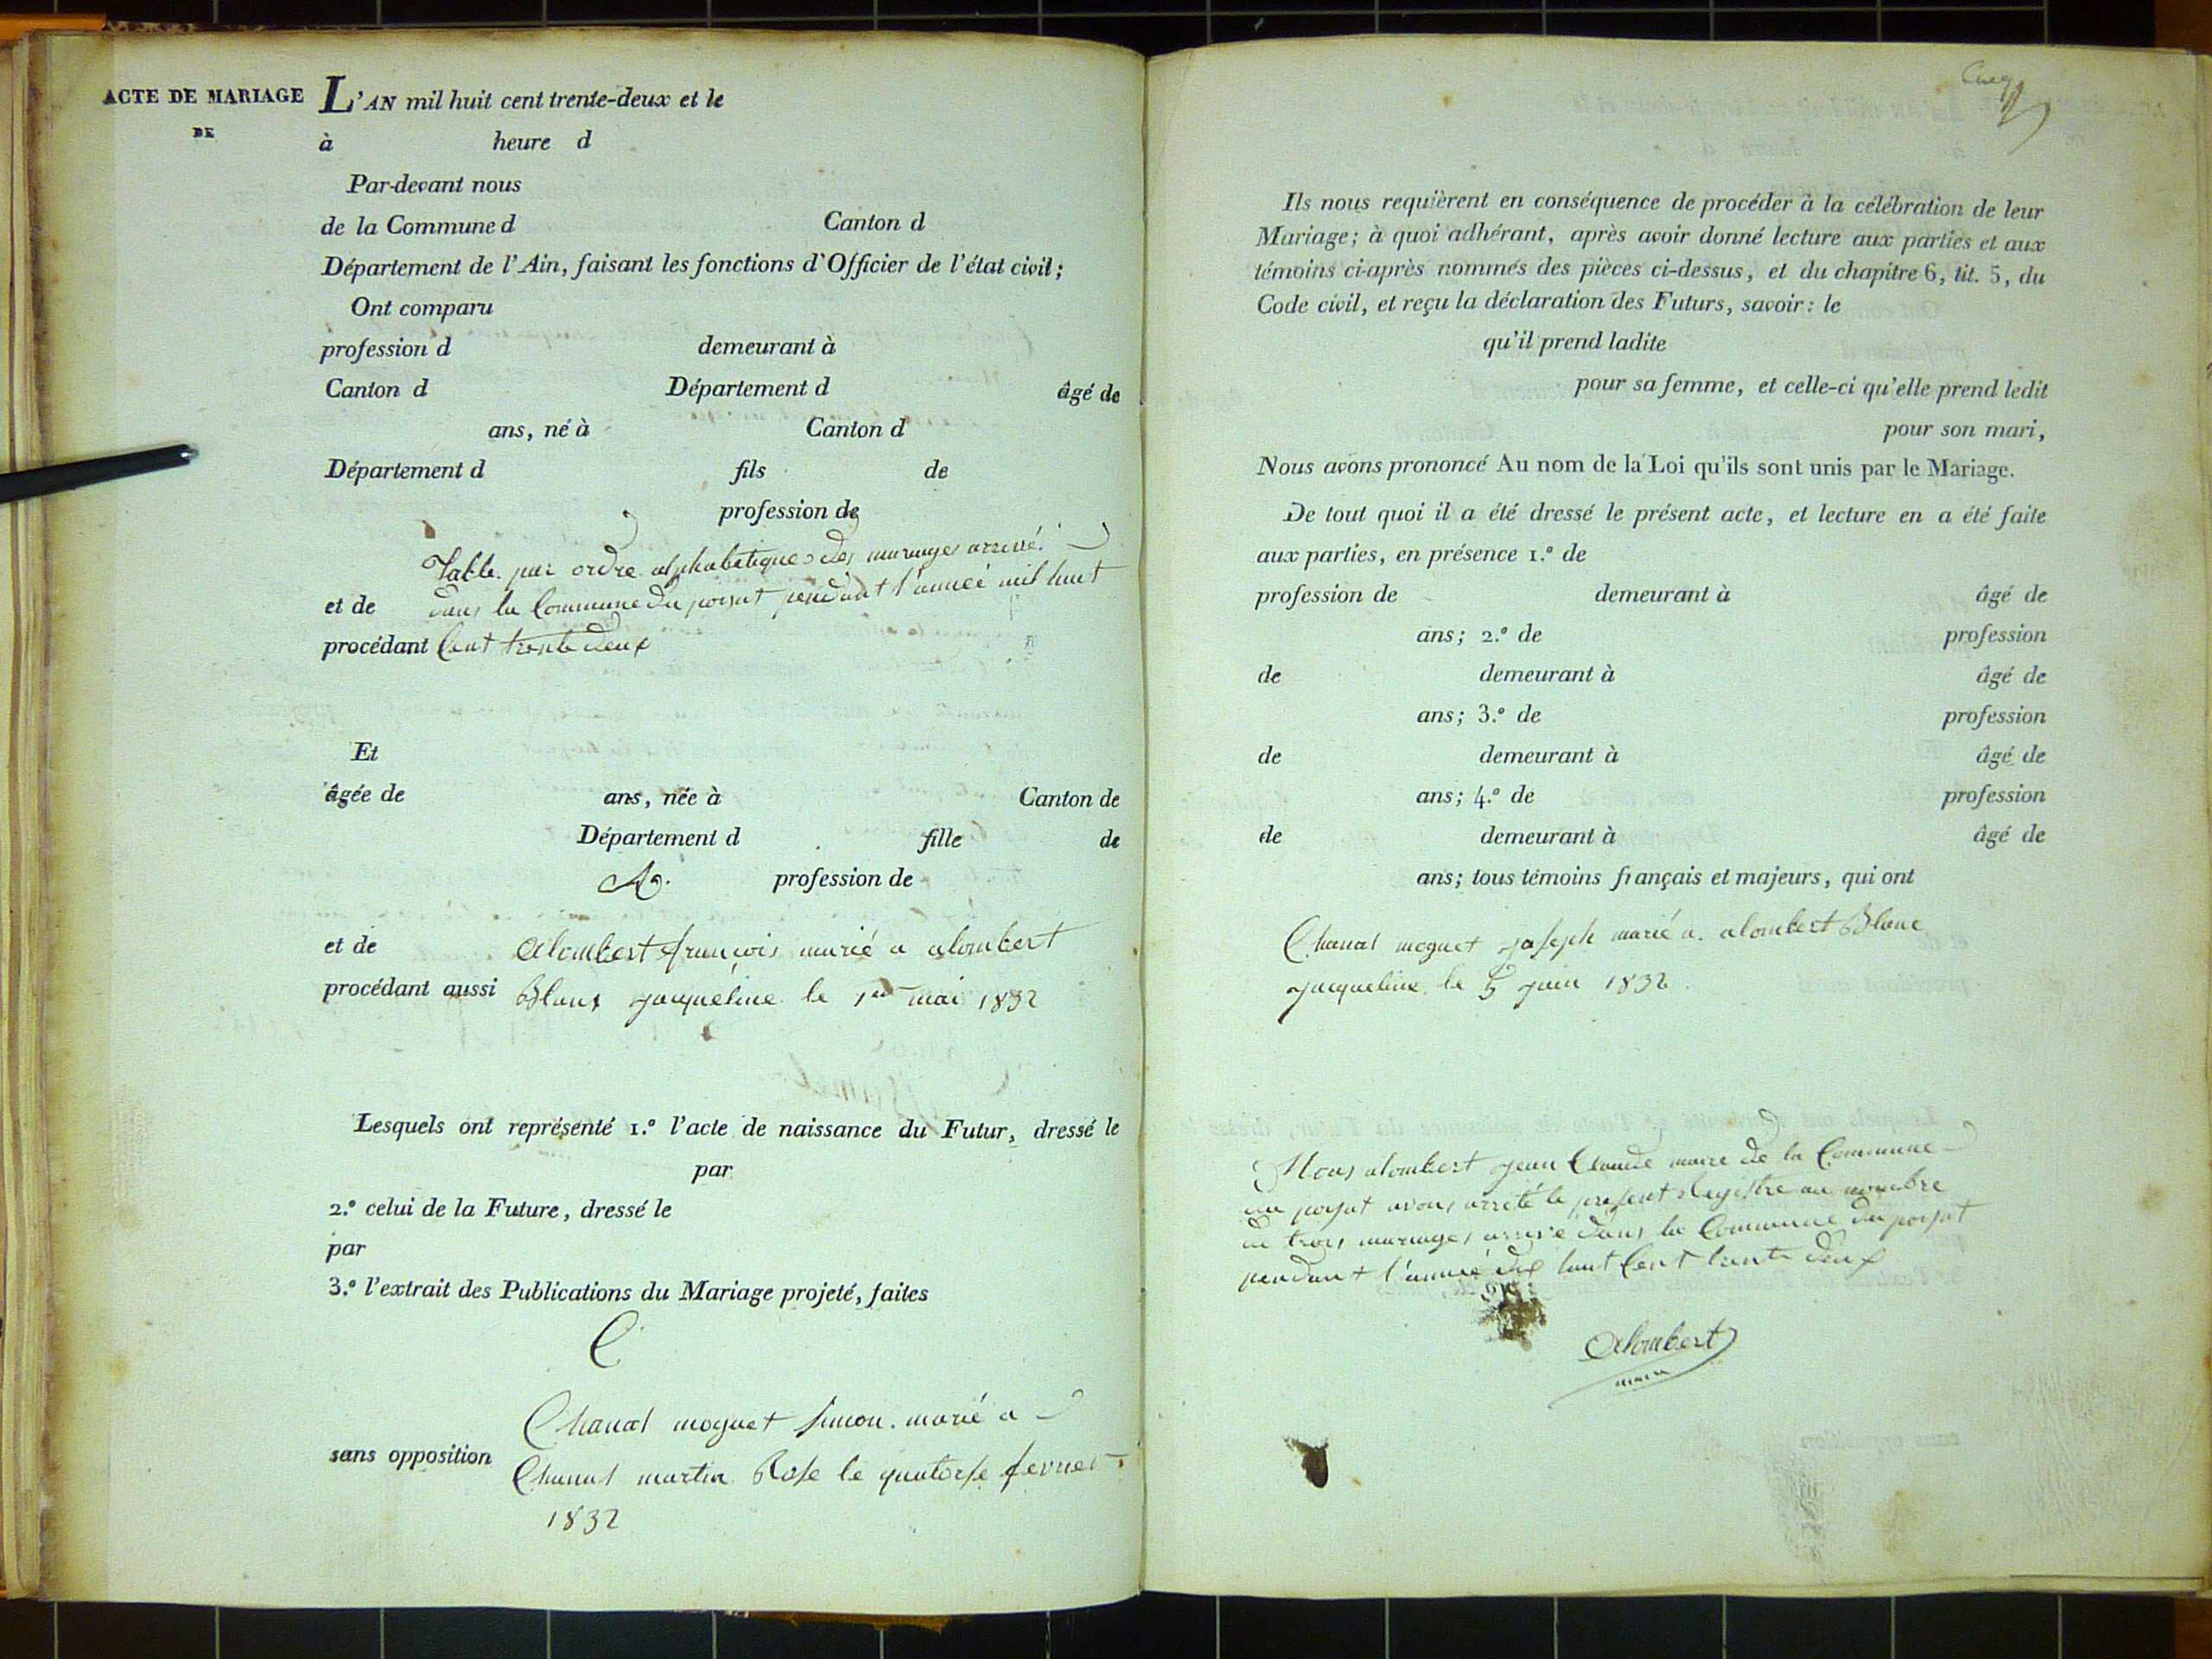 ACTE DE MARIAGE
DE
L'AN mil huit cent trente-deux et le
à heure d
Par-devant nous
de la Commune d Canton d
Département de l'Ain, faisant les fonctions d'Officier de l'état civil;
Ont comparu
profession d demeurant à
Canton d Département d âgé de
ans, né à Canton d
Département d fils de
profession de
Table par ordre alphabetique des mariages arrivé
et de dans la Commune du poizat pendant l'année mil huit
procédant Cent trente deux
Et
âgée de ans, née à Canton de
Département d fille de
A. profession de
et de alombert françois marié a alombert
procédant aussi Blanx jacqueline le 1er mai 1832
Lesquels ont représenté 1.º l'acte de naissance du Futur, dressé le
par
2.º celui de la Future, dressé le
par
3.º l'extrait des Publications du Mariage projeté, faites
C
Chanal moguet Simon. marié a
sans opposition Chanal martin Rose le quatorse fevrier
1832
Ils nous requièrent en conséquence de procéder à la célébration de leur
Mariage; à quoi adhérant, après avoir donné lecture aux parties et aux
témoins ci-après nommés des pièces ci-dessus, et du chapitre 6, tit. 5, du
Code civil, et reçu la déclaration des Futurs, savoir: le
qu'il prend ladite
pour sa femme, et celle-ci qu'elle prend ledit
pour son mari,
Nous avons prononcé Au nom de la Loi qu'ils sont unis par le Mariage.
De tout quoi il a été dressé le présent acte, et lecture en a été faite
aux parties, en présence 1.º de
profession de demeurant à âgé de
ans; 2.º de profession
de demeurant à âgé de
ans; 3.º de profession
de demeurant à âgé de
ans; 4.º de profession
de demeurant à âgé de
ans; tous témoins français et majeurs, qui ont
Chanal moguet joseph marié a. alombert Blanc
jacqueline le 5 juin 1832.
Nous alombert jean Claude maire de la Commune
du poizat avons arrété le present Registre au nombre
de trois mariages arrivé dans la Commune du poizat
pendant l'année dix huit Cent trente deux
Alombert
maire